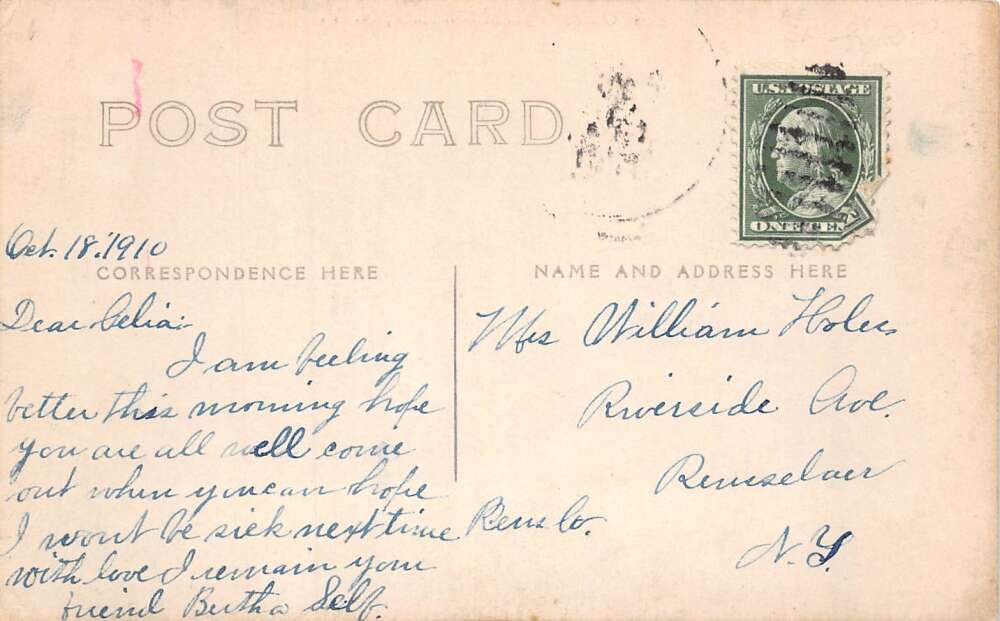 POST CARD
U.S. POSTAGE
ONE CEN
Oct. 18. 1910
CORRESPONDENCE HERE
NAME AND ADDRESS HERE
Dear Celia:
I am feeling
better this morning hope
you are all well come
out when you can hope
I wont be sick next time
with love I remain your
friend Bertha Self.
Mrs William Holes
Riverside Ave.
Rensselaer
Rens Co.
N.Y.